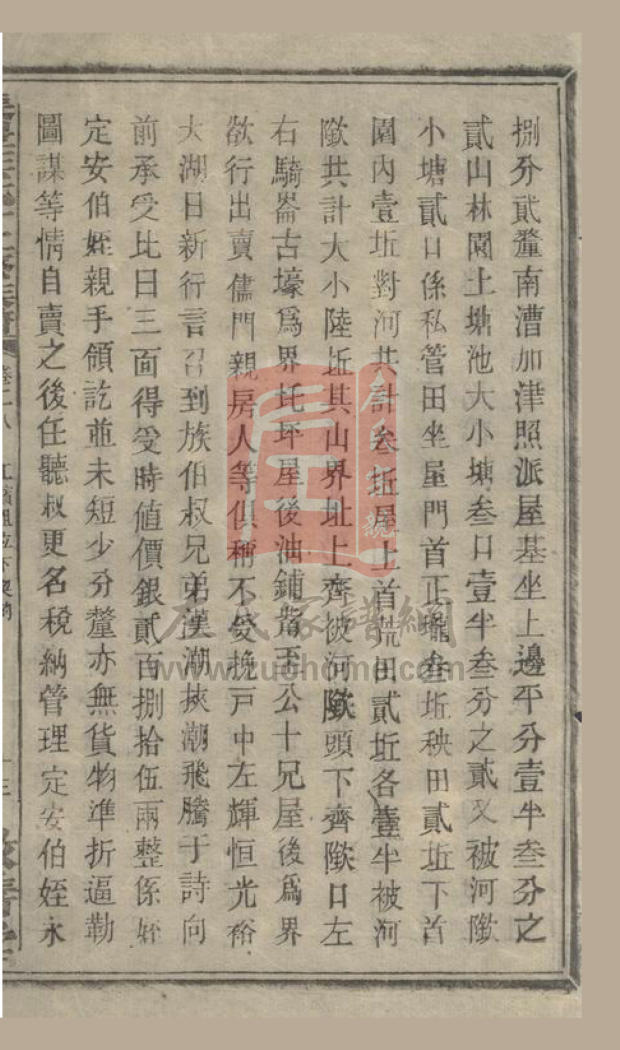 捌分貳釐南漕加津照派屋基坐上邊平分壹半叁分之
貳山林園土塘池大小塘叁口壹半叁分之貳又被河𡼏
小塘貳口係私管田坐屋門首正壠叁坵秧田貳坵下首
園內壹坵對河共計叁坵屋上首荒田貳坵各壹半被河
𡼏共計大小陸坵其山界址上齊被河𡼏頭下齊𡼏口左
右騎崙古壕爲界圫坪屋後油鋪背至公十兄屋後爲界
欲行出賣儘門親房人等俱稱不受挽戸中左輝恒光裕
大湖日新行言召到族伯叔兄弟漢潮挾潮飛騰于詩向
前承受比日三面得受時値價銀貳百捌拾伍兩整係
定安伯姪親手領訖並未短少分釐亦無貨物準折逼勒
圖謀等情自賣之後任聽叔更名稅納管理定安伯姪永
卷二八
左氏家譜網
www.zuohome.com